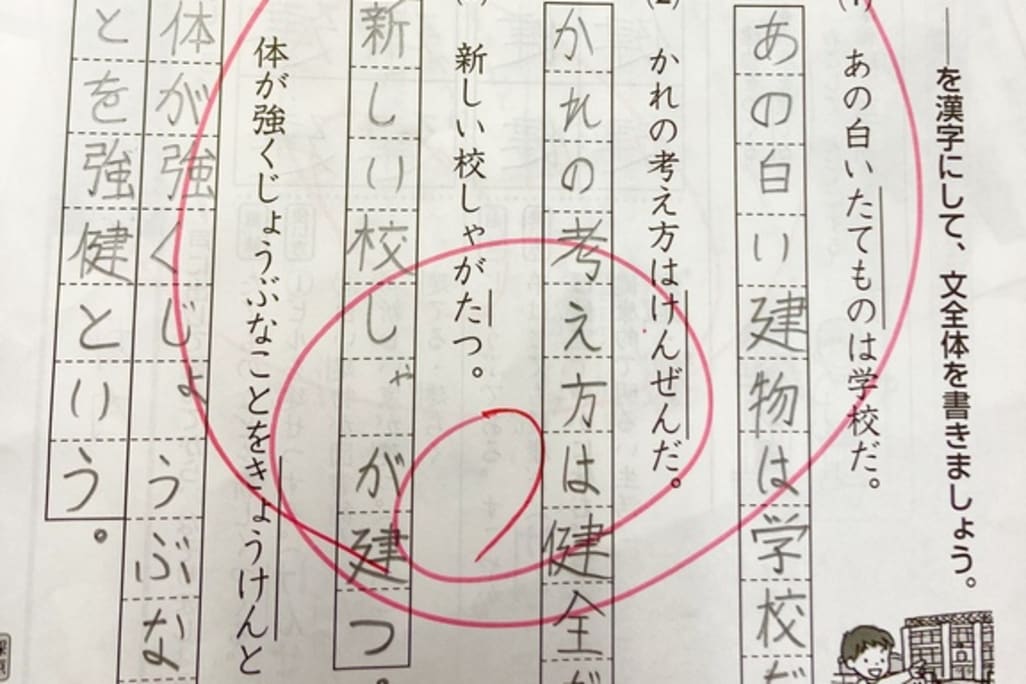 を漢字にして、文全体を書きましょう。
あの白いたてものは学校だ。
あの白い建物は学校だ
(2) かれの考え方はけんぜんだ。
かれの考え方は健全だ
新しい校しゃがたつ。
新しい校しゃが建つ。
体が強くじょうぶなことをきょうけんと
体が強くじょうぶな
とを強健という。